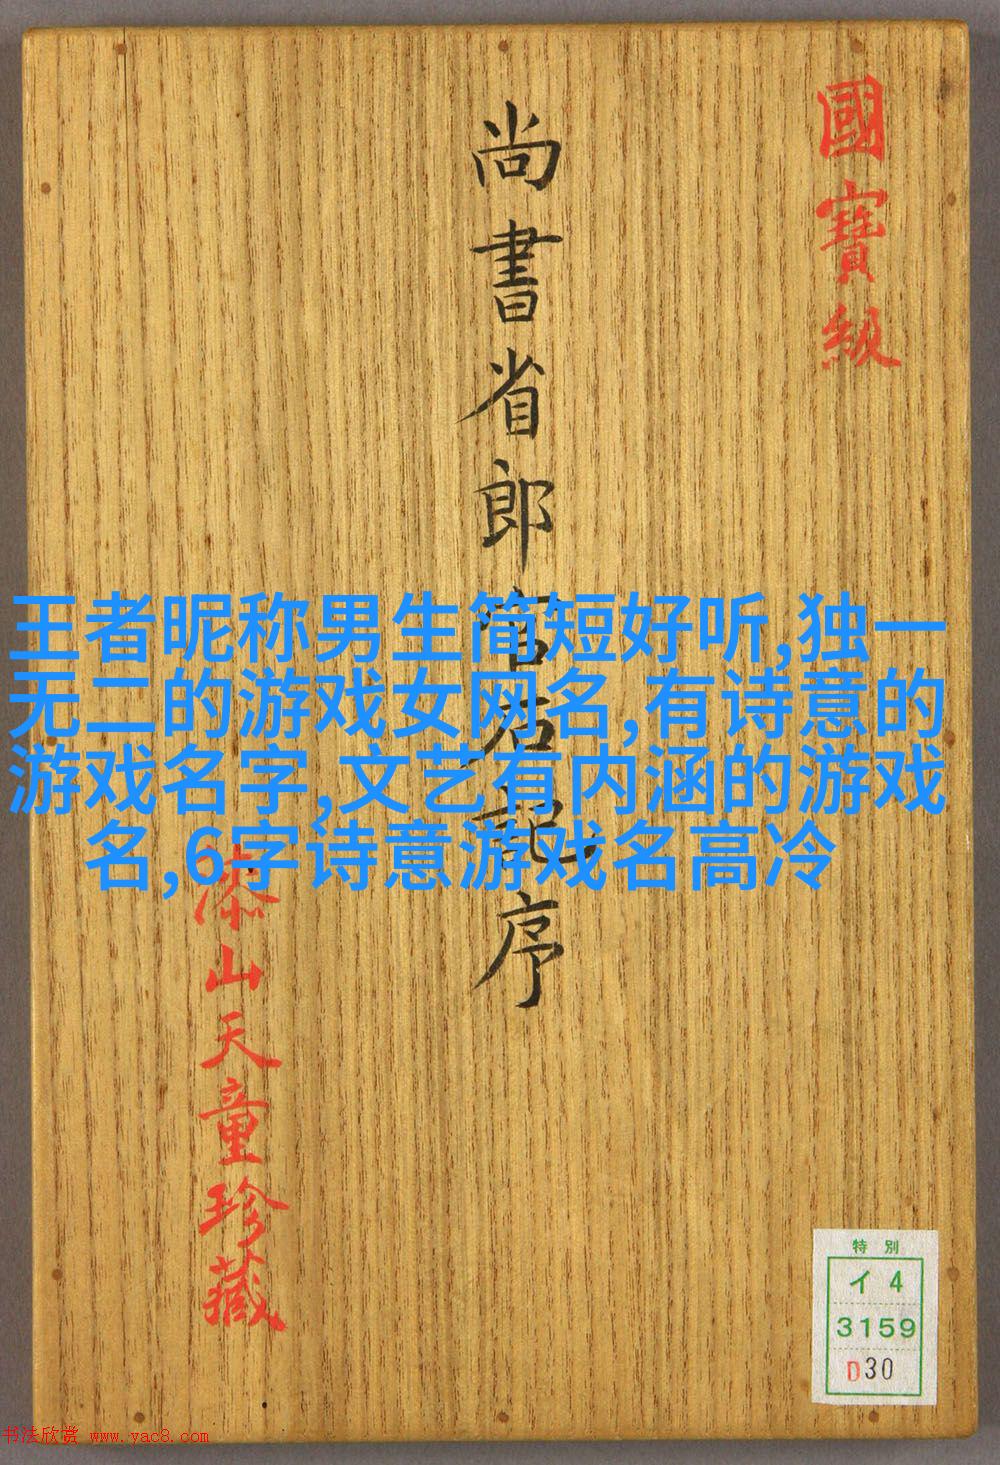 國寶級
尚書省郎官石記序
王者昵称男生简短好听,独一
无二的游戏女网名,有诗意的
游戏名字,文艺有内涵的游戏
名,6字诗意游戏名高冷
泰山天童珍藏
特別
イ 4
3159
D30
书法欣赏 www.yac8.com